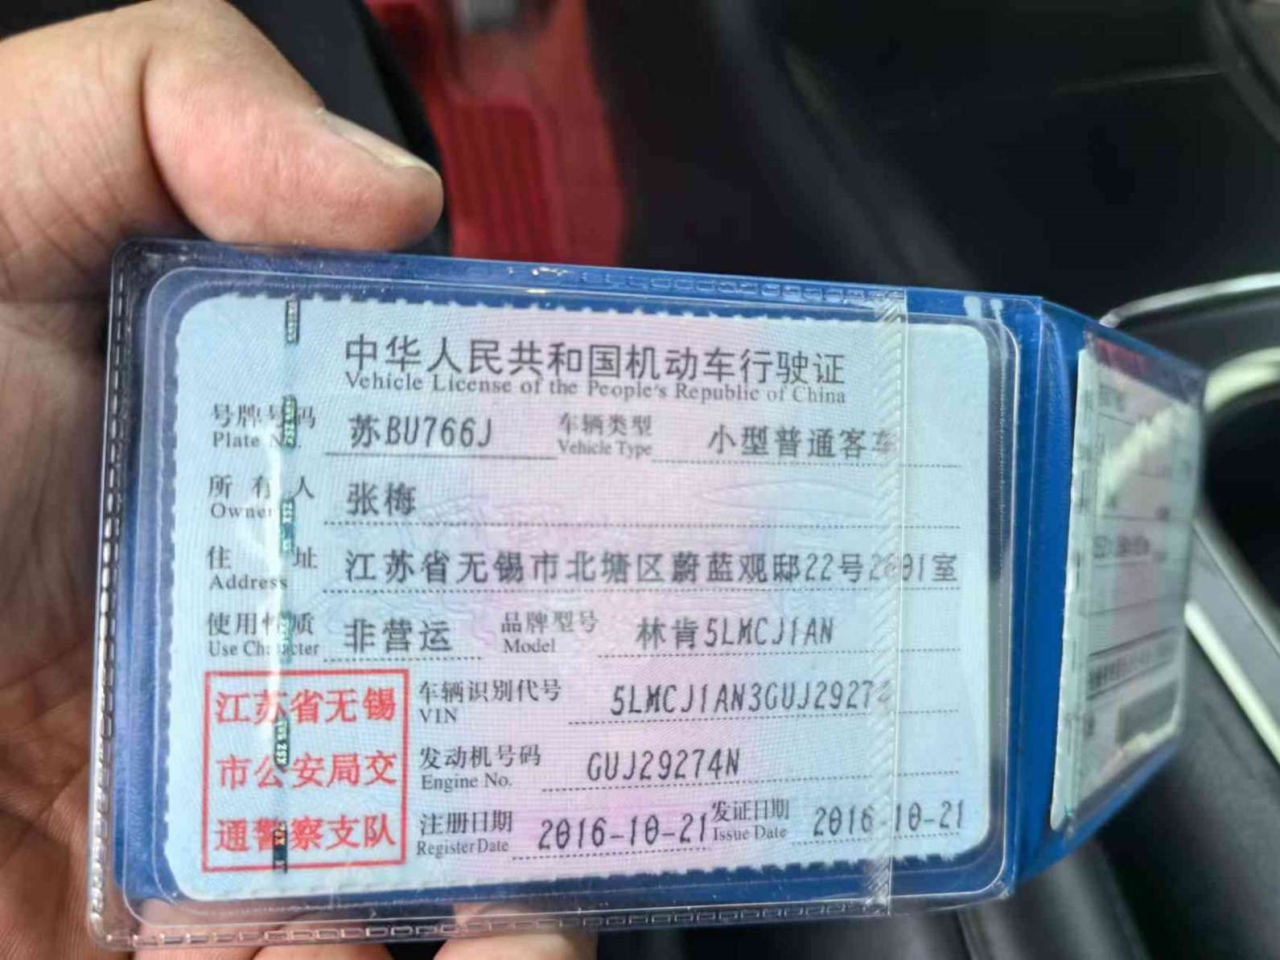 中华人民共和国机动车行驶证
Vehicle License of the People's Republic of China
号牌号码 苏BU766J 车辆类型 小型普通客车
Plate No. Vehicle Type
所有人 张梅
Owner
住址 江苏省无锡市北塘区蔚蓝观邸22号2601室
Address
使用性质 非营运 品牌型号 林肯5LMCJ1AN
Use Character Model
江苏省无锡
市公安局交
通警察支队
车辆识别代号 5LMCJ1AN3GUJ29274
VIN
发动机号码 GUJ29274N
Engine No.
注册日期 2016-10-21 发证日期 2016-10-21
Register Date Issue Date